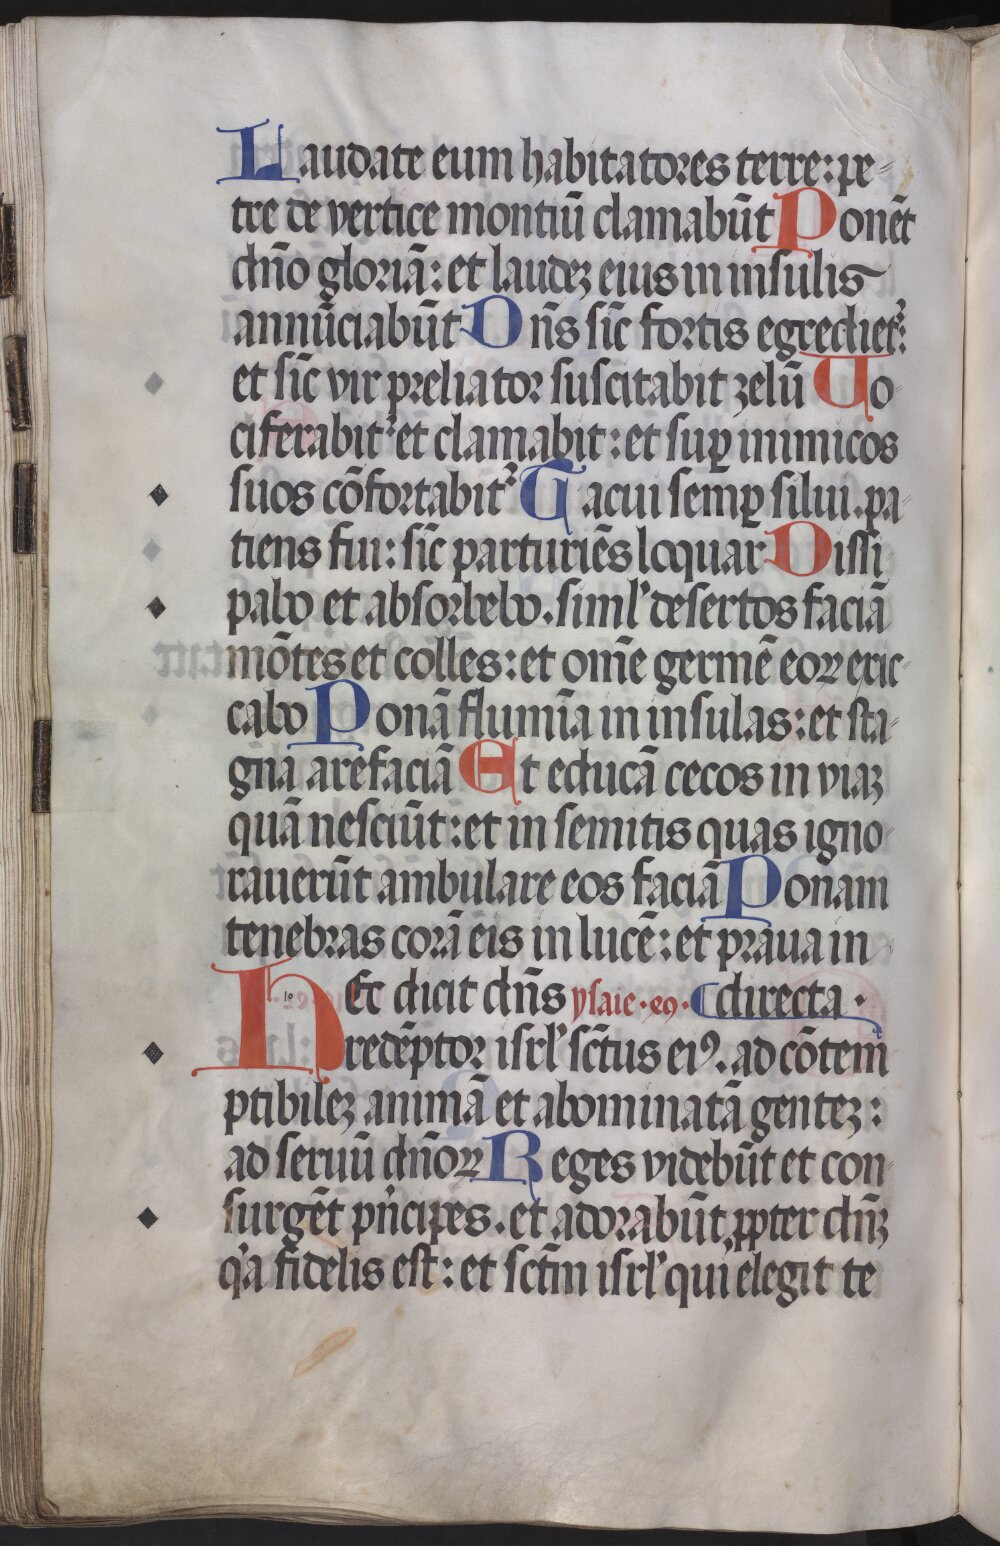 Laudate eum habitatores terre: pe-
tre de vertice montiū clamabūt Ponēt
dn̄o gloriā: et laudeꝫ eius in insulis
annūciabūt Dn̄s sīc fortis egrediet᷑:
et sīc vir preliator suscitabit zelū Uo-
ciferabit᷑ et clamabit: et suꝑ inimicos
suos cōfortabit᷑ Tacui semꝑ silui. pa-
tiens fui: sīc parturiēs loquar Dissi-
pabo et absorbebo. siml' desertos faciā
mōtes et colles: et om̄e germē eoꝝ exic-
cabo Ponā flumīa in insulas: et sta-
gna arefaciā Et educā cecos in viaꝫ
quā nesciūt: et in semitis quas igno-
rauerūt ambulare eos faciā Ponam
tenebras corā eis in lucē: et praua in
HEc dicit dn̄s ysaie .49. directa.
redēptor isrl' sc̄tus eiꝰ. ad cōtem̄
ptibileꝫ animā et abominatā genteꝫ:
ad seruū dn̄oꝝ Reges videbūt et con-
surgēt pn̍cipes. et adorabūt ꝓpter dn̄ꝫ
q̍a fidelis est: et sc̄tm isrl' qui elegit te